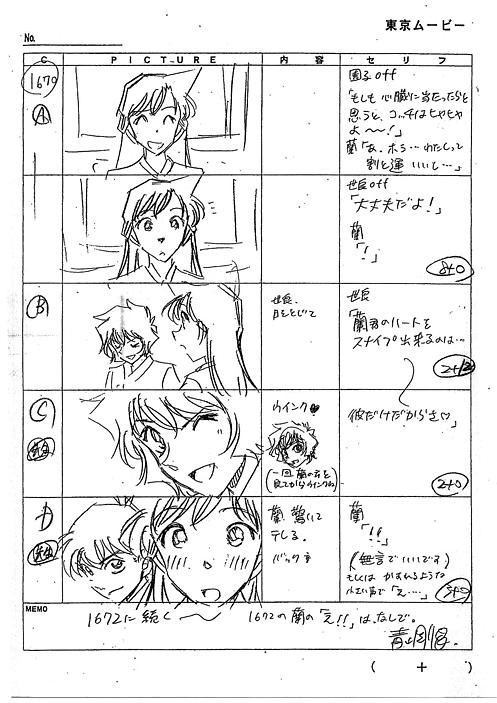 東京ムービー
No.
C PICTURE 内容 セリフ
1670
A
園子off
「もしも心臓に当たったらと
思うと、コッチはヒヤヒヤ
よ〜!」
蘭「あ、ホラ…わたしって
割と運いいし…」
世良off
「大丈夫だよ!」
蘭
「!」
8+0
B
世良、
目をとじて
世良
「蘭君のハートを
スナイプ出来るのは…
2+12
C
ウインク♥
(一回蘭の方を
見てからウインクね)
彼だけだからさ♡」
2+0
D
蘭 驚いて
テレる。
バック
蘭
「!!」
(無言でいいです。
もしくは かすれるような
小さい声で「え…
3+0
MEMO
1672に続く〜 1672の蘭の「え!!」は、なしで。
青山剛昌
( + )